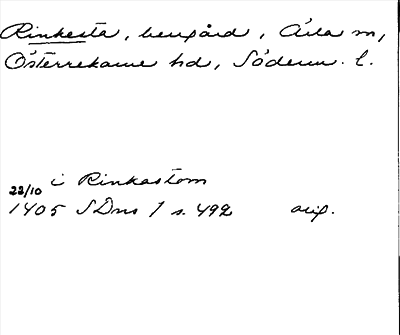 Rinkesta, herrgård, Ärla sn,
Österrekarne hd, Söderm. l.
i Rinkastom
23/10
1405 SDns 1 s. 492 orig.